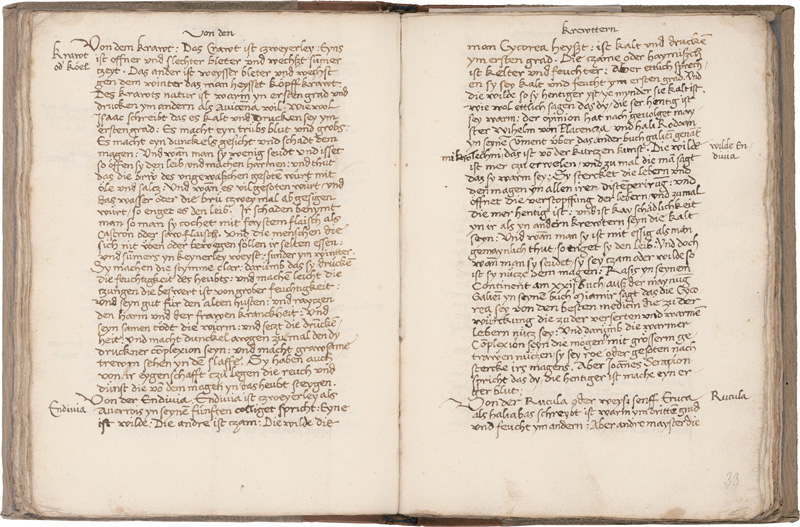 Von den
Krawt
od' Köel
Von dem krawt: Das Crawt ist tzweyerley: Eyns
ist offner und slechter bleter und wechßt sumer
tzeyt. Das ander ist weysser bleter und wechst
gen dem winter das man heysset köpff krawt.
Des krawts natur ist warm ym ersten grad und
drucken ym andern als Avicena wil. Wie wol
Isaac schreibt das es kalt und Drucken sey ym
ersten grad. Es macht eyn trübs blut und grobs.
Es macht eyn dunckels gesicht und schadt dem
magen: Und wan man sy wenig seudt und isset
so offen sy den leib und machen harmen: und thut
das die brw des ungewaschen gesoten würt mit
öle und saltz: Und wan es vil gesoten würt: und
das wasser oder die brü tzweymal abgesigen
würt, so enget es den leib. Ir schaden benymt
man so man sy cochet mit faystem flaisch als
Castron oder saw flaisch. Und die menschen die
sich nit üben oder bewegen sollen ir selten essen:
und sümers yn keynerley weyse: sunder ym winter.
Sy machen die stymme clar. darumb das sy drücke
die feuchtigkeit des heubts: und machen leicht die
tzungen die beswert ist von grober feuchtigkeit:
Und seyn gut für den alten husten: und raytzen
den harm und der frawen kranckheit: Und
seyn samen tödt die würm: und setzt die drücke
heit. Und macht dunckel awgen zumal den dy
druckner cöplexion seyn: und macht grawsame
trewm sehen yn dē slaffe. Sy haben auch
von ir eygenschafft tzü legen die reuch und
dünst die vō den magen yn das heubt steygen.
Endivia
Von der Endivia. Endivia ist tzweyerley als
Averrois yn seynē fünften colliget spricht: Eyne
ist wilde: Die andre ist tzam: Die wilde die
Krewttern
man Cycorea heyßt: ist kalt und drucken
ym ersten grad. Die tzame oder haymisch
ist kelter und feuchter: Aber etlich sprech/
en sy sey kalt und feucht ym ersten grad. Und
die wilde so sy hentiger ist ye mynder sie kalt ist.
wie wol ettlich sagen das dy, die ser hentig ist
sey warm: der opinion hat nach gevolget may
ster Wilhelm von Placencia und hali Rodoan
yn seyne Cment über das ander buch galieni genāt
mikrotechni daz ist vō der kurtzen kunst. Die wilde
wilde En
divia
ist mer zu erwelen: und zu mal die mā sagt
das sy warm sey: Dy stercket die lebern und
den magen yn allen iren distēperirug: und
öffnet die verstopffung der lebern, und zumal
die mer hentig ist: und ist kay schädlichkeit
yn er als yn andern krewtern seyn die kalt
seyn: Und wan man sy ist mit essig als man
gemaynlich thut so enget sy den leib. Und doch
wan man sy seudet sy sey tzam oder wilde so
ist sy nütze dem magen: Rasis yn seynem
Continent am xxij buch auß der maynug
Galiei yn seynē buch Miamir sagt das die Cyco
rea sey von den besten medicin die zu der
würckung die zu der verserten und warme
lebern nütz sey: Und darumb die warmer
Cöplexion seyn die mögen mit grossern ge
trawen nutzen sy sey roe oder gesoten nach
stercke irs magens. Aber Joānes Serapion
spricht das dy die hentiger ist mache eyn er
ger blut
Rucula
Von der Rucula oder weyß senff Eruca
als haliabas schreybt ist warm ym dritte grad
und feucht ym andern: Aber andre mayster die
33